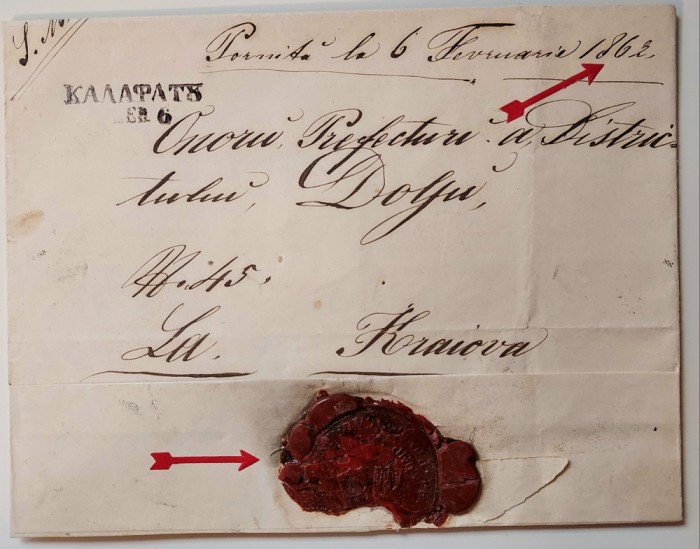 S. M.
Pornită la 6 Fevruarie 1862.
КАЛАФАТꙊ
6
Onorŭ, Prefecturi a Distric-
tuluĭ, Doljŭ,
N. 45.
La. Kraiova